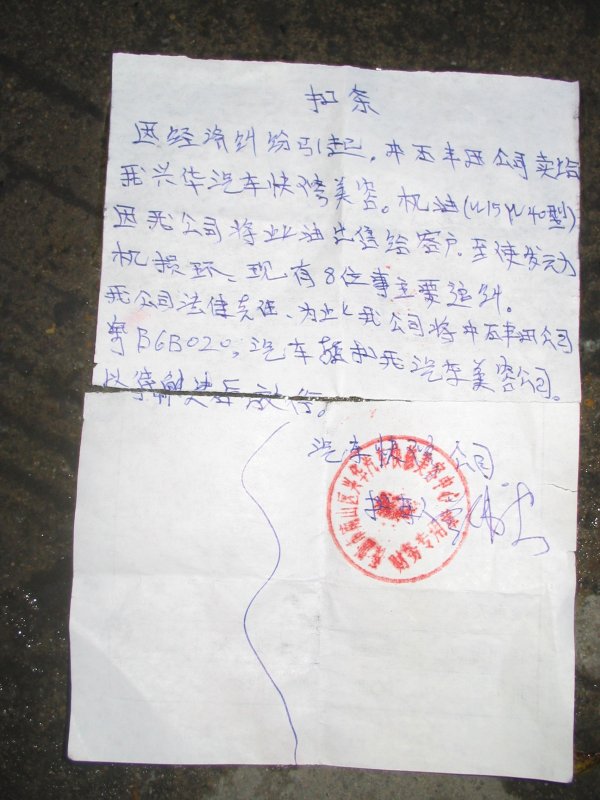 扣条
因经济纠纷引起，中石丰田公司卖给
我兴华汽车快修美容。机油(W15W40型)
因我公司将此油出售给客户，至使发动
机损坏、现有8位事主要追纠。
我公司法律责任、为此我公司将中石丰田公司
粤BGB020，汽车暂扣我汽车美容公司。
以待解决后放行。
汽车快修公司